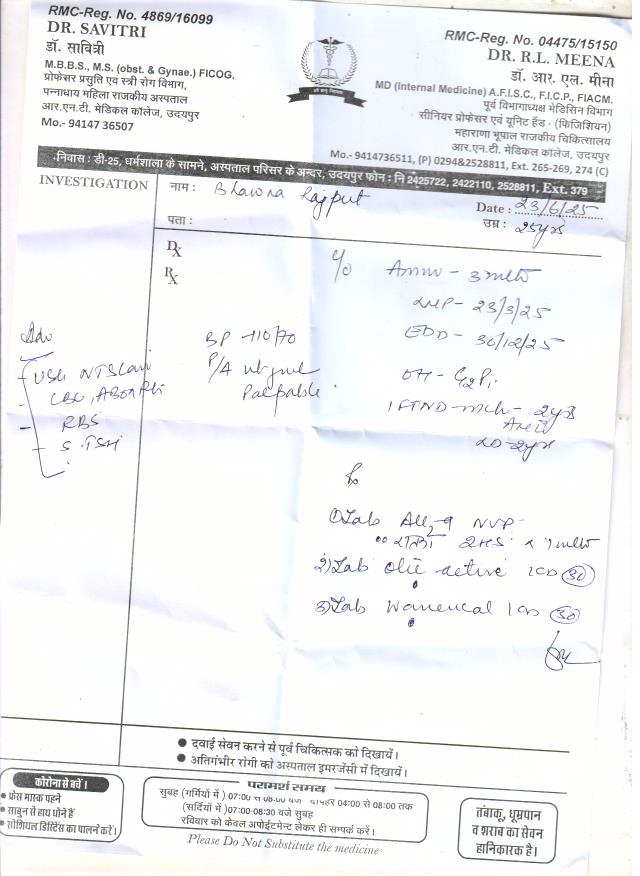 RMC-Reg. No. 4869/16099
DR. SAVITRI
डॉ. सावित्री
M.B.B.S., M.S. (obst. & Gynae.) FICOG.
प्रोफेसर प्रसुति एवं स्त्री रोग विभाग,
पन्नाधाय महिला राजकीय अस्पताल
आर.एन.टी. मेडिकल कॉलेज, उदयपुर
Mo.- 94147 36507
RMC-Reg. No. 04475/15150
DR. R.L. MEENA
डॉ. आर. एल. मीना
MD (Internal Medicine) A.F.I.S.C., F.I.C.P., FIACM.
पूर्व विभागाध्यक्ष मेडिसिन विभाग
सीनियर प्रोफेसर एवं यूनिट हैंड - (फिजिशियन)
महाराणा भूपाल राजकीय चिकित्सालय
आर.एन.टी. मेडिकल कॉलेज, उदयपुर
Mo.- 9414736511, (P) 029482528811, Ext. 265-269, 274 (C)
निवास : डी-25, धर्मशाला के सामने, अस्पताल परिसर के अन्दर, उदयपुर फोन : नि 2425722, 2422110, 2528811, Ext. 379
INVESTIGATION
नाम : Bhawna Rajput
Date : 23/6/25
पता :
उम्र : 25yrs
Dx
Rx
c/o Amm - 3 mth
LMP - 23/3/25
EDD - 30/12/25
OH - G2P1
1 FTND - mch - 2yrs
LD - 2yr
BP - 110/70
P/A
Palpable
Adv
- USG NT Scan
- CBC, ABORh
- RBS
- S.TSH
Rx
1) Tab NVP
2) Tab active 1 OD 30
3) Tab 1 OD 30
दवाई सेवन करने से पूर्व चिकित्सक को दिखायें।
अतिगंभीर रोगी को अस्पताल इमरजेंसी में दिखायें।
कोरोना से बचें।
फ्रेस मास्क पहने
साबुन से हाथ धोने हैं
सोशियल डिस्टिंस का पालन करें।
परामर्श समय
सुबह (गर्मियों में ) 07:00 से 08:00 बजे दोपहर 04:00 से 08:00 तक
(सर्दियों में )07:00-08:30 बजे सुबह
रविवार को केवल अपोईंटमेन्ट लेकर ही सम्पर्क करें।
Please Do Not Substitute the medicine
तंबाकू, धूम्रपान
व शराब का सेवन
हानिकारक है।